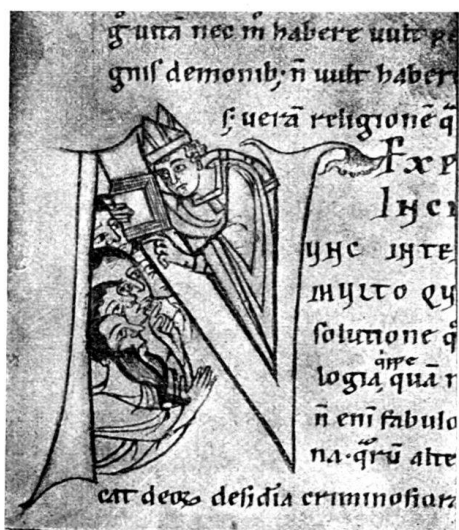 guttā nec m̄ habere uult
gnis demonib; n̄ uult haber
s; uerā religionē q̄
Exp
Inci
unc inte
multo qu
solutione q̄
logiā quā n
n̄ eni fabulo
na. q̄rū alte
cat deoꝝ desidia criminosiora